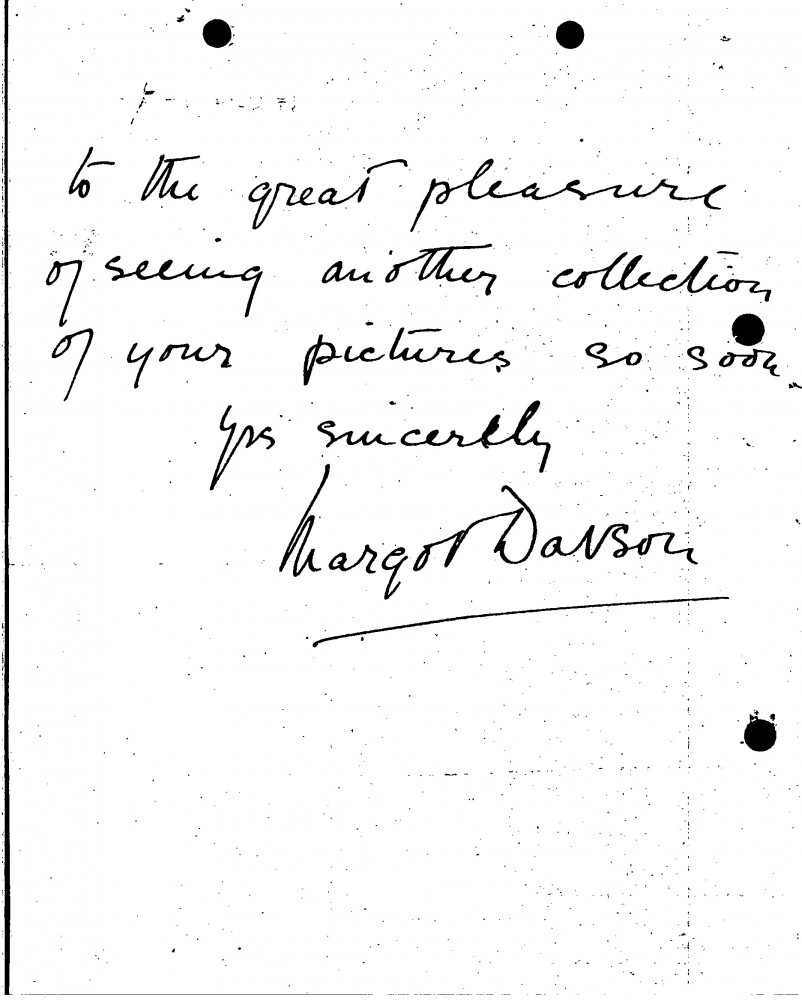 to the great pleasure
of seeing another collection
of your pictures so soon.
Yrs sincerely
Margot Davson